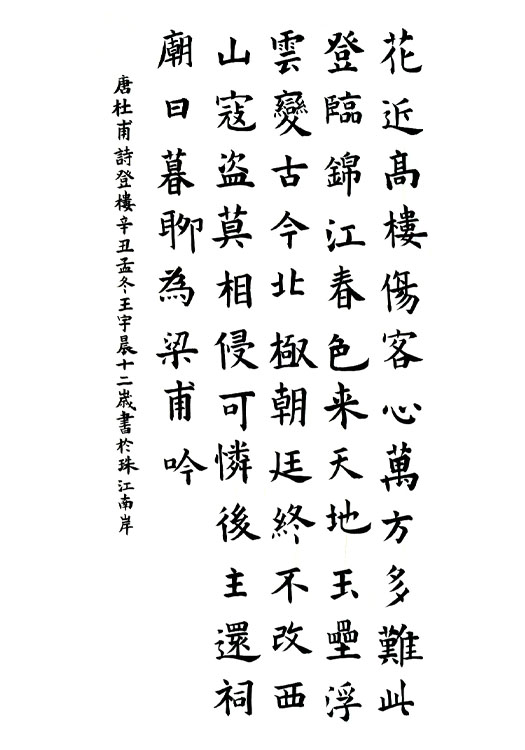 花近高樓傷客心萬方多難此
登臨錦江春色来天地玉壘浮
雲變古今北極朝廷終不改西
山寇盗莫相侵可憐後主還祠
廟日暮聊為梁甫吟
唐杜甫詩登樓辛丑孟冬王宇晨十二歲書於珠江南岸